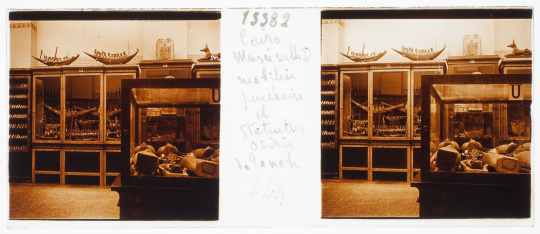 13382
Cairo
Musée salle D
mobilier
funéraire
et
Statuettes
osiris
U
U